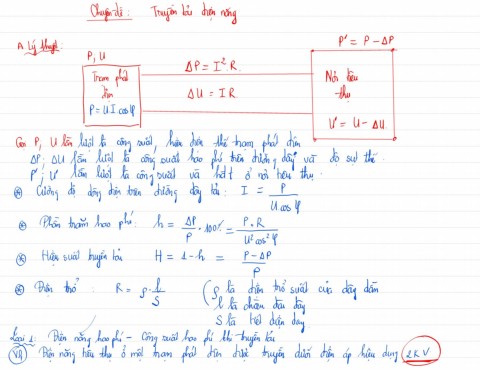 Chuyên đề: Truyền tải điện năng
A. Lý thuyết:
P, U
P' = P - ΔP
Trạm phát điện
P = U I cosφ
ΔP = I² R
ΔU = I R
Nơi tiêu thụ
U' = U - ΔU
Gọi P, U lần lượt là công suất, hiệu điện thế trạm phát điện
ΔP; ΔU lần lượt là công suất hao phí trên đường dây và độ sụt thế
P'; U' lần lượt là công suất và hđt ở nơi tiêu thụ
⊛ Cường độ dòng điện trên đường dây tải: I = P / U cosφ
⊛ Phần trăm hao phí: h = ΔP / P . 100% = P . R / U² cos² φ
⊛ Hiệu suất truyền tải H = 1 - h = P - ΔP / P
⊛ Điện trở: R = ρ . l / S (ρ là điện trở suất của dây dẫn
l là chiều dài dây
S là tiết diện dây
Loại 1: Điện năng hao phí - Công suất hao phí khi truyền tải
VD Điện năng tiêu thụ ở một trạm phát điện được truyền dưới điện áp hiệu dụng 2KV